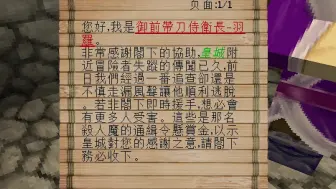 页面:1/1
您好,我是御前帶刀侍衛長-羽羅。
非常感謝閣下的協助,皇城附
近冒險者失蹤的傳聞已久,前
日我們經過一番追查卻還是
不慎走漏風聲讓他順利逃脫
。若非閣下即時援手,想必會
有更多人受害。這些是那名
殺人魔的通緝令懸賞金,以示
皇城對您的感謝之意,請閣下
務必收下。